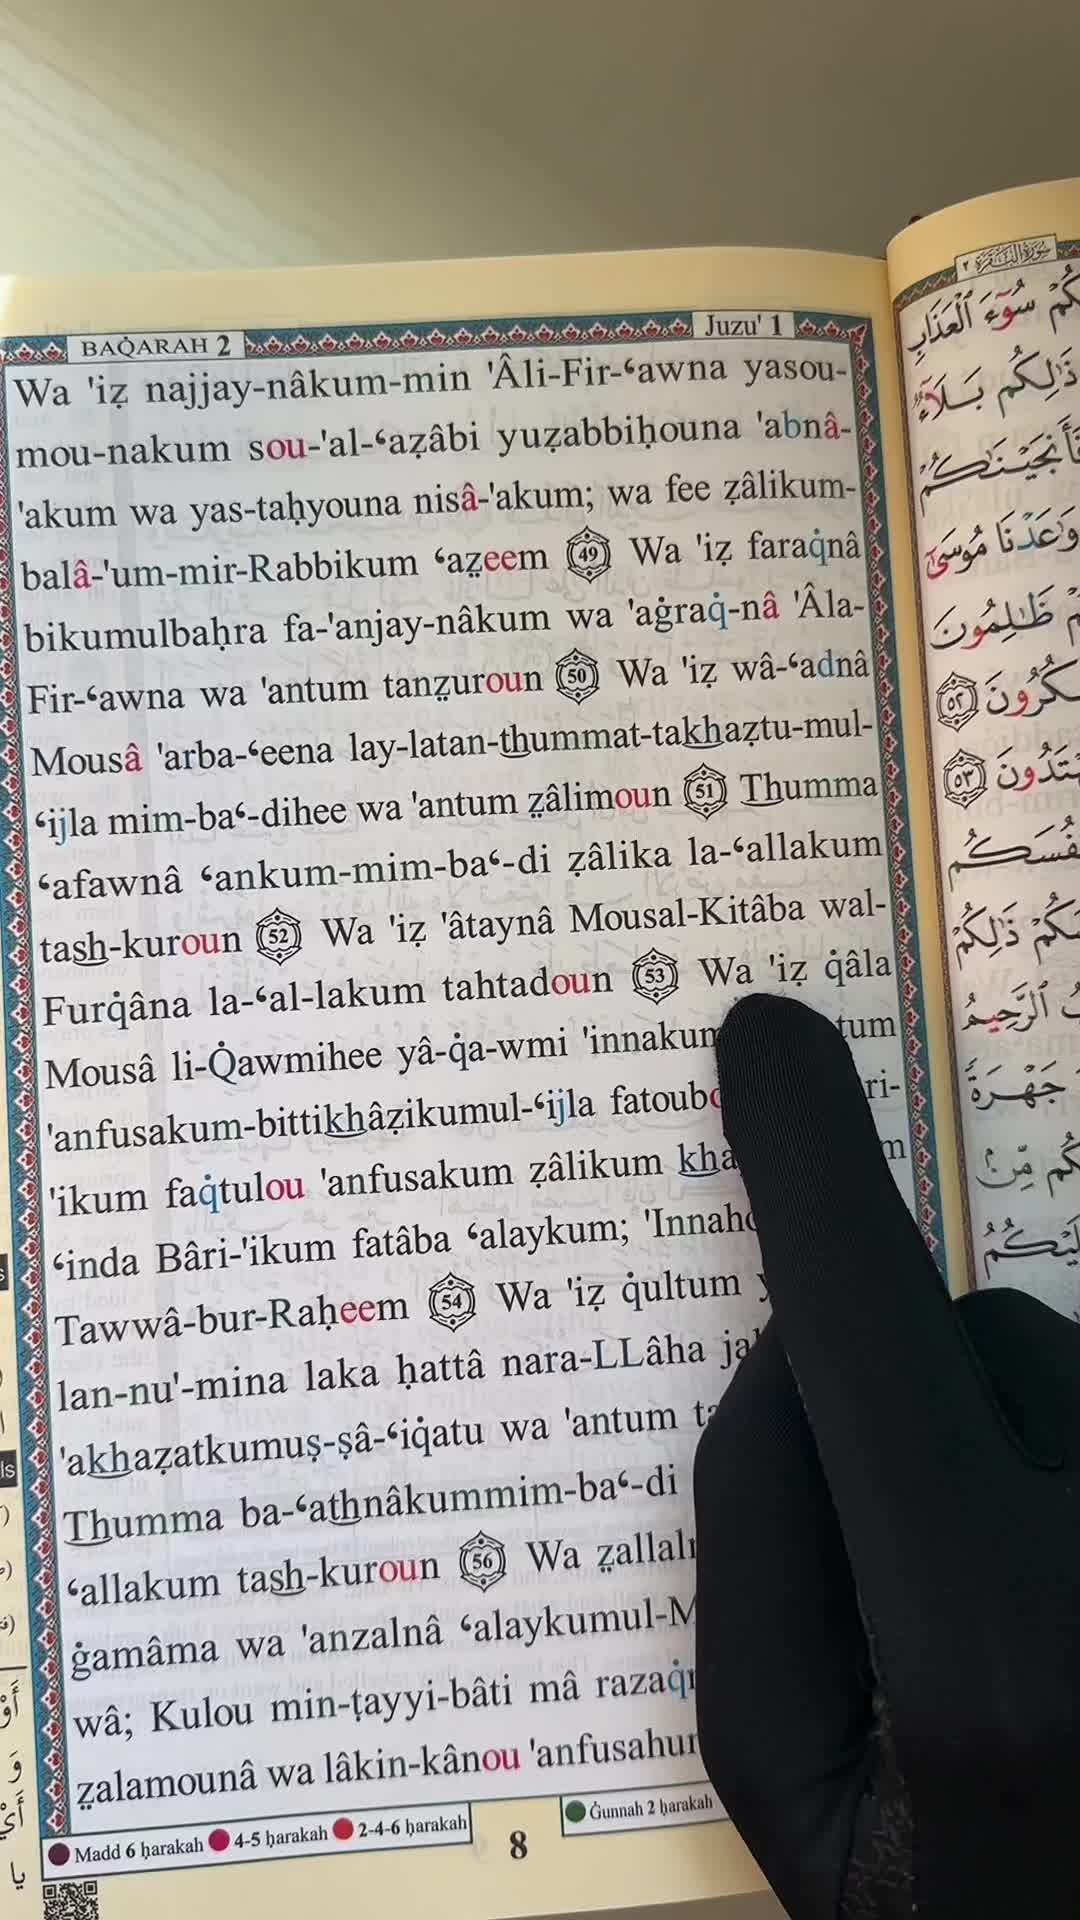 BAQ̇ARAH 2
Juzu' 1
Wa 'iẓ najjay-nâkum-min 'Âli-Fir-ʿawna yasou-
mou-nakum sou-'al-ʿaẓâbi yuẓabbiḥouna 'abnâ-
'akum wa yas-taḥyouna nisâ-'akum; wa fee ẓâlikum-
balâ-'um-mir-Rabbikum ʿaẓeem 49 Wa 'iẓ faraq̇nâ
bikumulbaḥra fa-'anjay-nâkum wa 'aġraq̇-nâ 'Âla-
Fir-ʿawna wa 'antum tanẓuroun 50 Wa 'iẓ wâ-ʿadnâ
Mousâ 'arba-ʿeena lay-latan-thummat-takhaẓtu-mul-
ʿijla mim-baʿ-dihee wa 'antum ẓâlimoun 51 Thumma
ʿafawnâ ʿankum-mim-baʿ-di ẓâlika la-ʿallakum
tash-kuroun 52 Wa 'iẓ 'âtaynâ Mousal-Kitâba wal-
Furq̇âna la-ʿal-lakum tahtadoun 53 Wa 'iẓ q̇âla
Mousâ li-Q̇awmihee yâ-q̇a-wmi
'anfusakum-bittikhâẓikumul-ʿijla
'ikum faq̇tulou 'anfusakum ẓâlikum
ʿinda Bâri-'ikum fatâba ʿalaykum;
Tawwâ-bur-Raḥeem 54 Wa 'iẓ q̇ultum
lan-nu'-mina laka ḥattâ nara-LLâha
'akhaẓatkumuṣ-ṣâ-ʿiq̇atu wa 'antum
Thumma ba-ʿathnâkummim-baʿ-di
ʿallakum tash-kuroun 56 Wa
ġamâma wa 'anzalnâ
wâ; Kulou min-ṭayyi-bâti mâ
ẓalamounâ wa lâkin-kânou
Madd 6 ḥarakah 4-5 ḥarakah 2-4-6 ḥarakah
8
Ġunnah 2 ḥarakah
سُورَةُ البَقَرَةِ ٢
سُوٓءَ ٱلْعَذَابِ
ذَٰلِكُم بَلَآءٌ
فَأَنجَيْنَٰكُمْ
وَٰعَدْنَا مُوسَىٰٓ
ظَٰلِمُونَ
٥٢
٥٣
ذَٰلِكُمْ
ٱلرَّحِيمُ
جَهْرَةً
مِّنۢ